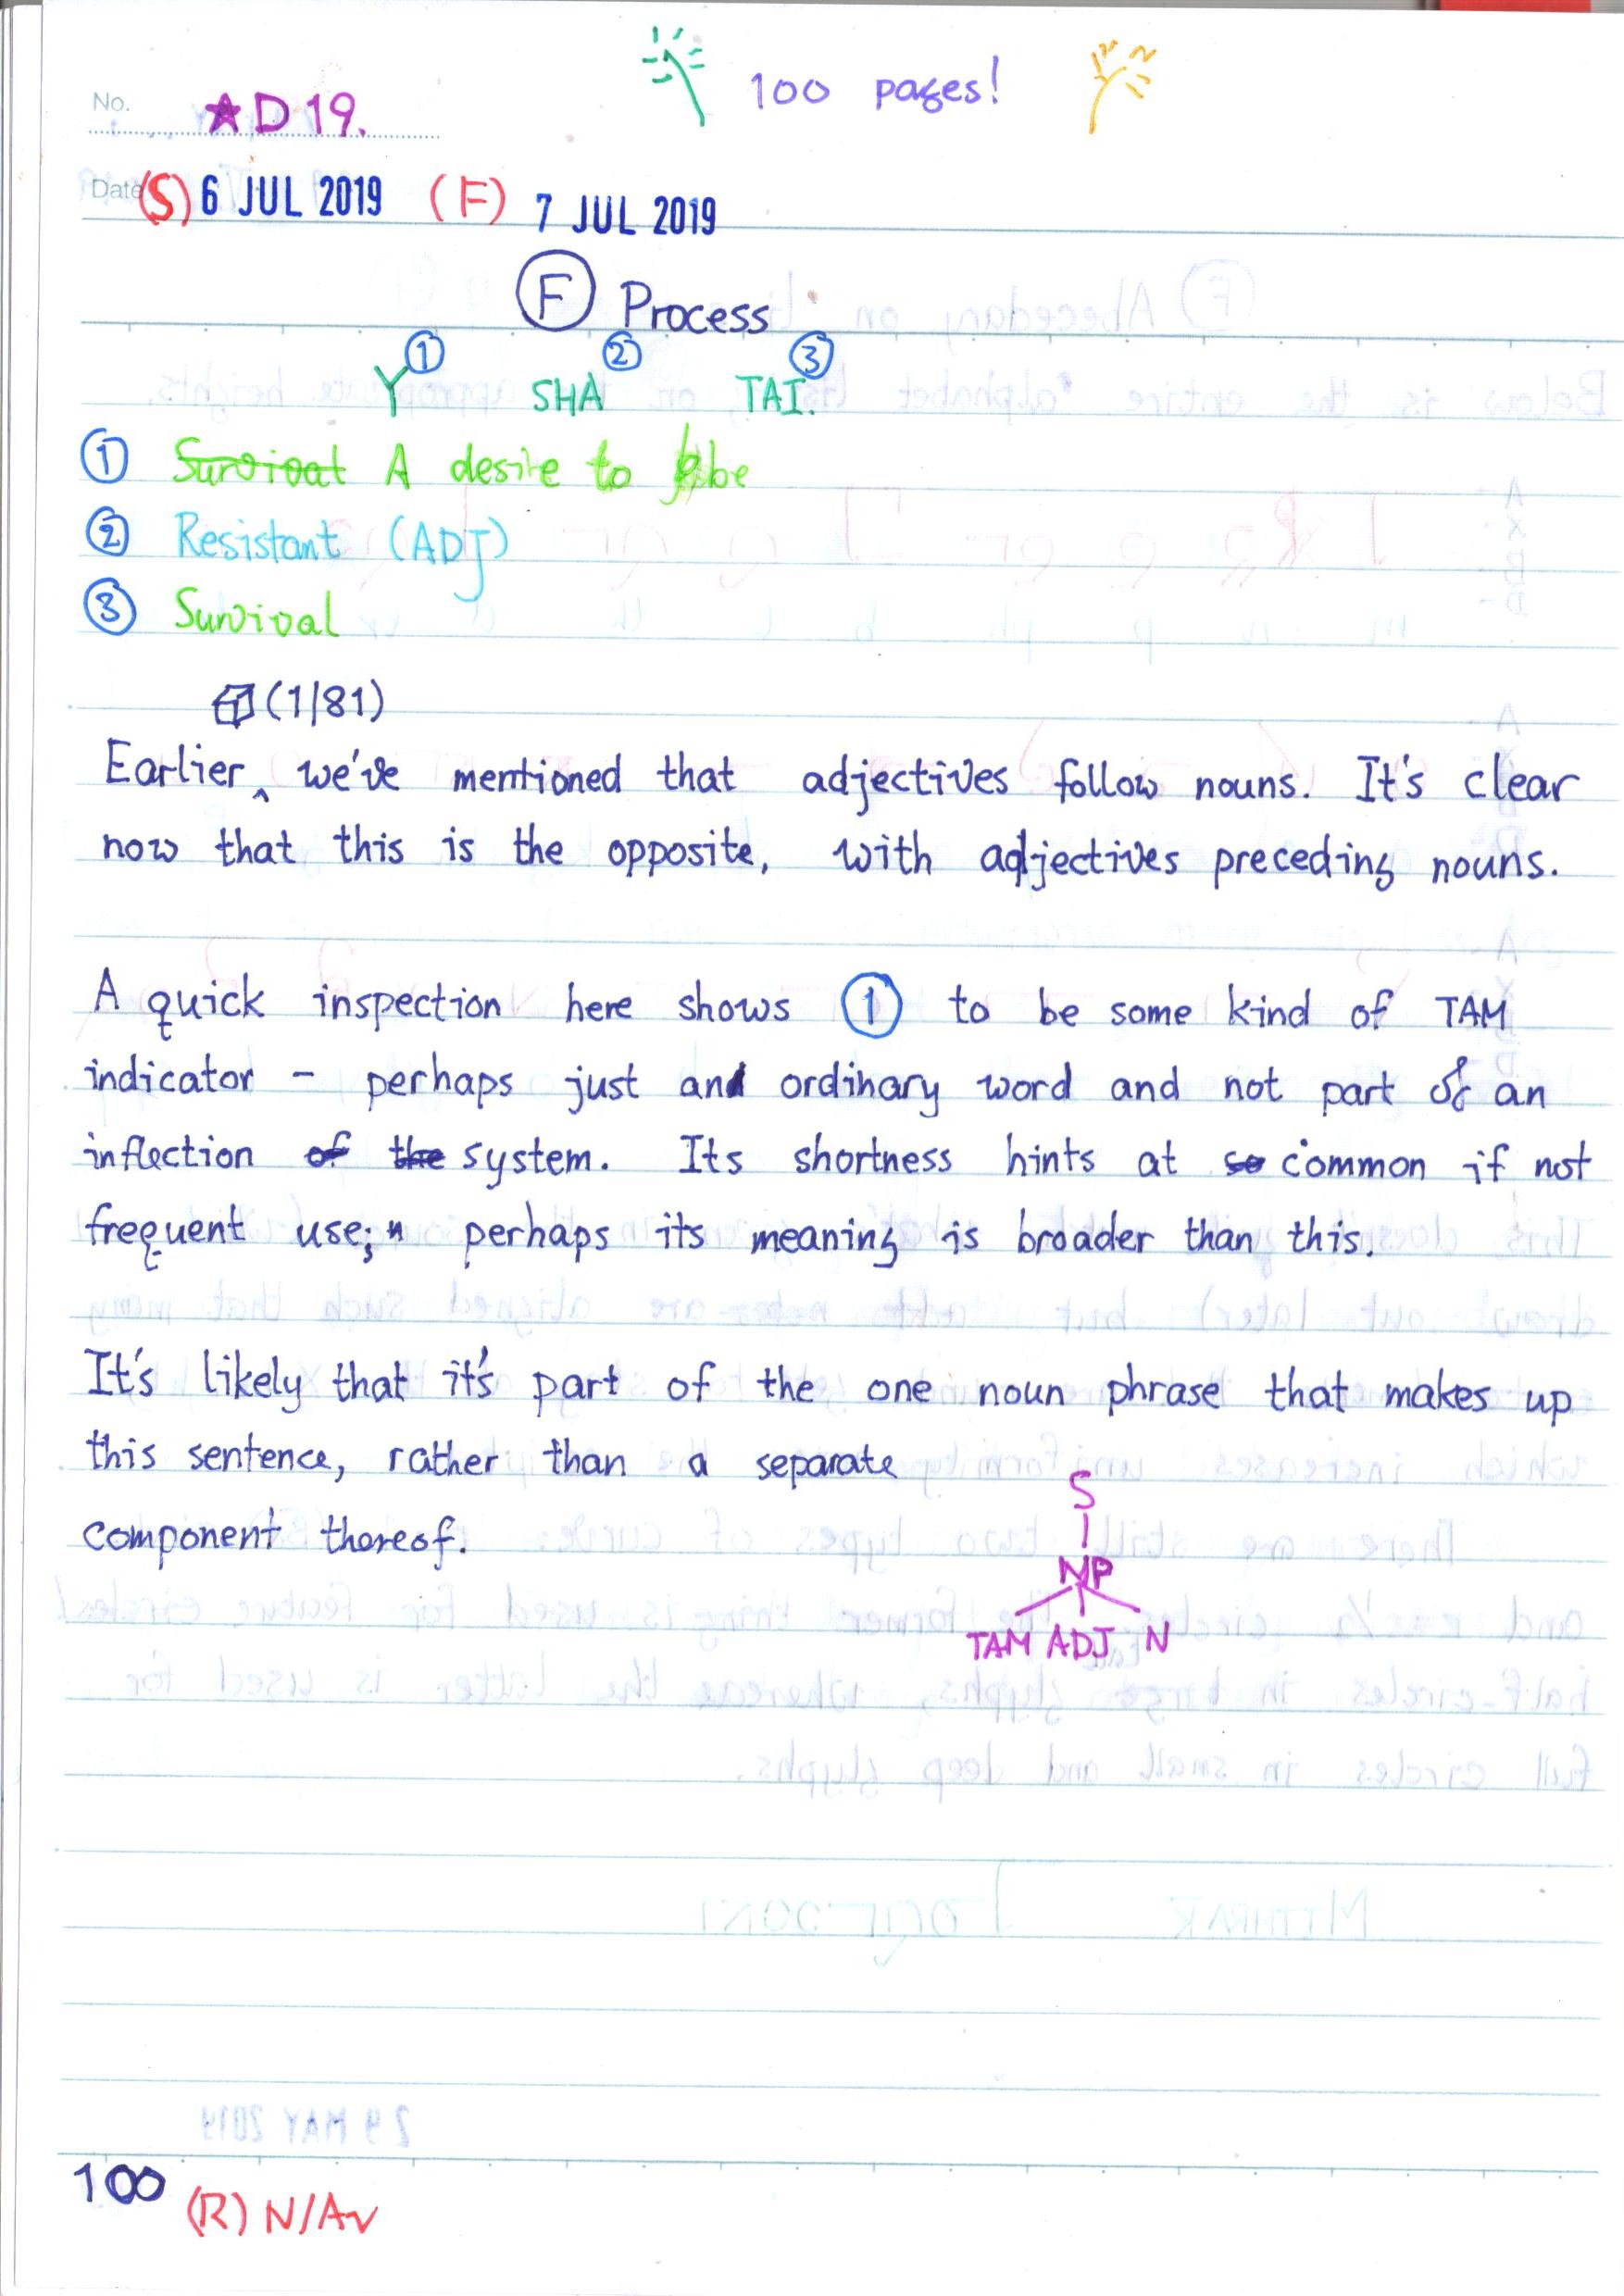 100 pages!
No. ★D19.
Date (S) 6 JUL 2019 (F) 7 JUL 2019
Ⓕ Process
Y① SHA② TAI.③
① Survival A desire to be
② Resistant (ADJ)
③ Survival
(1/81)
Earlier‸ we've mentioned that adjectives follow nouns. It's clear
now that this is the opposite, with adjectives preceding nouns.
A quick inspection here shows ① to be some kind of TAM
indicator – perhaps just an ordinary word and not part of an
inflection of the system. Its shortness hints at so common if not
frequent use; perhaps its meaning is broader than this.
It's likely that it's part of the one noun phrase that makes up
this sentence, rather than a separate
component thereof.
S
NP
TAM ADJ N
100 (R) N/Av